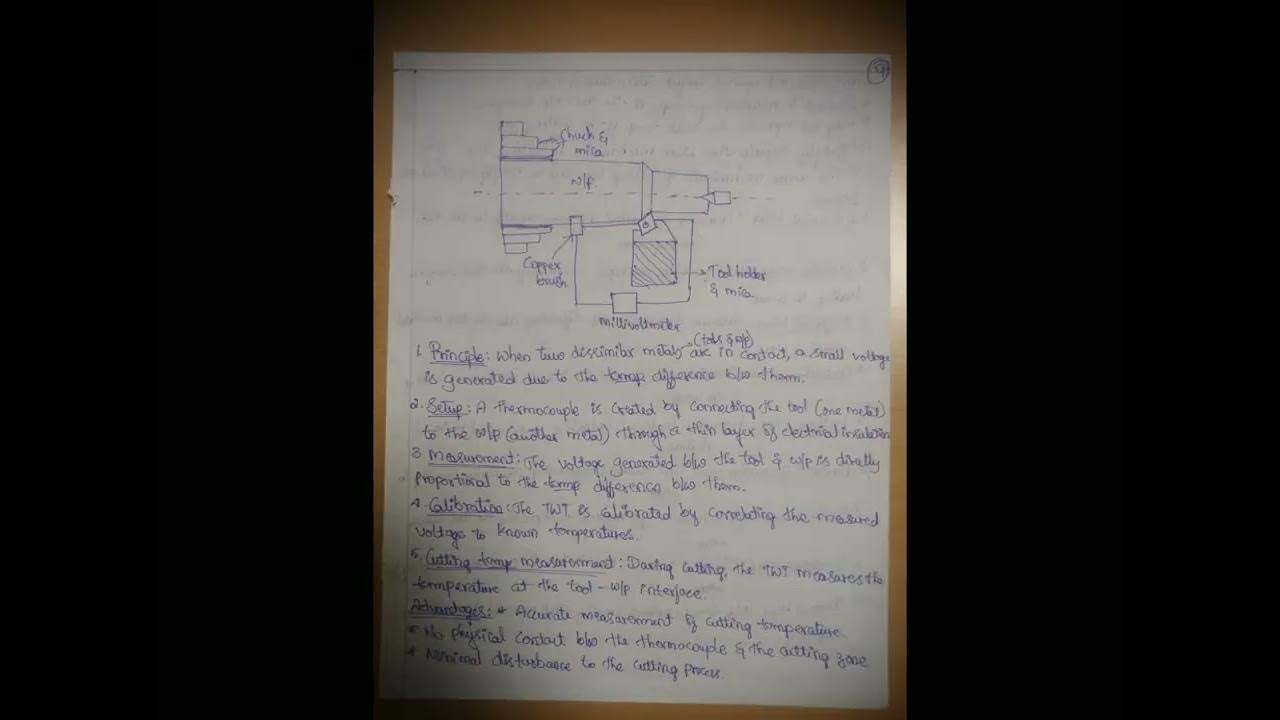 59
Chuck &
mica
w/p.
Copper
brush
Tool holder
& mica
Millivoltmeter
(tools & w/p)
1. Principle: When two dissimilar metals are in contact, a small voltage
is generated due to the temp. difference b/w them.
2. Setup: A thermocouple is created by connecting the tool (one metal)
to the w/p (another metal) through a thin layer of electrical insulation
3. Measurement: The voltage generated b/w the tool & w/p is directly
proportional to the temp difference b/w them.
4. Calibration: The TWT is calibrated by correlating the measured
voltage to known temperatures.
5. Cutting temp. measurement: During cutting, the TWT measures the
temperature at the tool - w/p interface.
Advantages: * Accurate measurement of cutting temperature
* No physical contact b/w the thermocouple & the cutting zone
* Minimal disturbance to the cutting process.